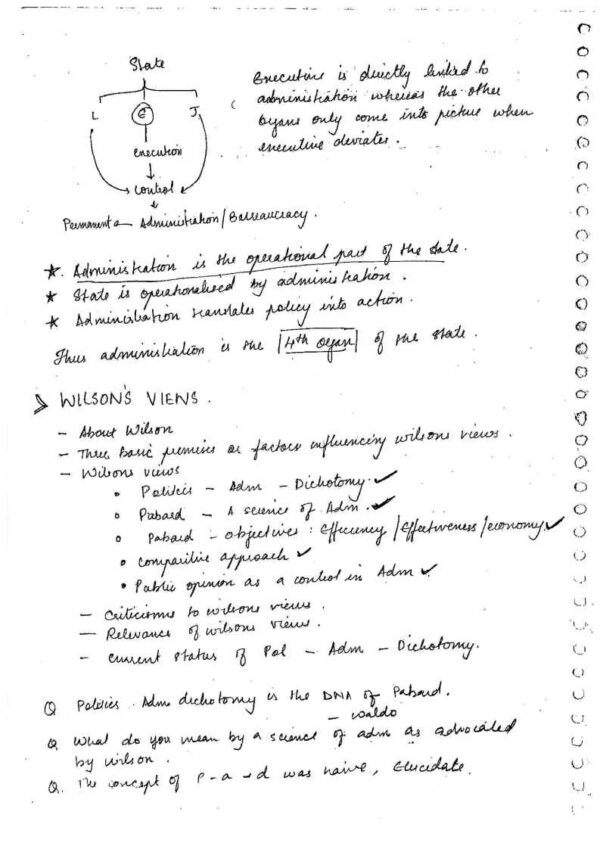 State
L E J
execution
control
Permanent - Administration/Bureaucracy.
Executive is directly linked to
administration whereas the other
organs only come into picture when
executive deviates.
★. Administration is the operational part of the state.
★ State is operationalised by administration.
★ Administration translates policy into action.
Thus administration is the |4th organ| of the state.
> WILSON'S VIEWS.
- About Wilson
- Three basic premises or factors influencing wilsons views.
- Wilsons views
• Politics - Adm - Dichotomy ✓
• Pubard - A science of Adm. ✓
• Pubard - objectives: Efficiency/Effectiveness/economy ✓
• comparitive approach ✓
• Public opinion as a control in Adm ✓
- Criticisms to wilsons views.
- Relevance of wilsons views.
- current status of Pol - Adm - Dichotomy.
Q Politics. Adm dichotomy is the DNA of Pubard.
- Waldo
Q. What do you mean by a science of adm as advocated
by wilson.
Q. The concept of P-a-d was naive, Elucidate.